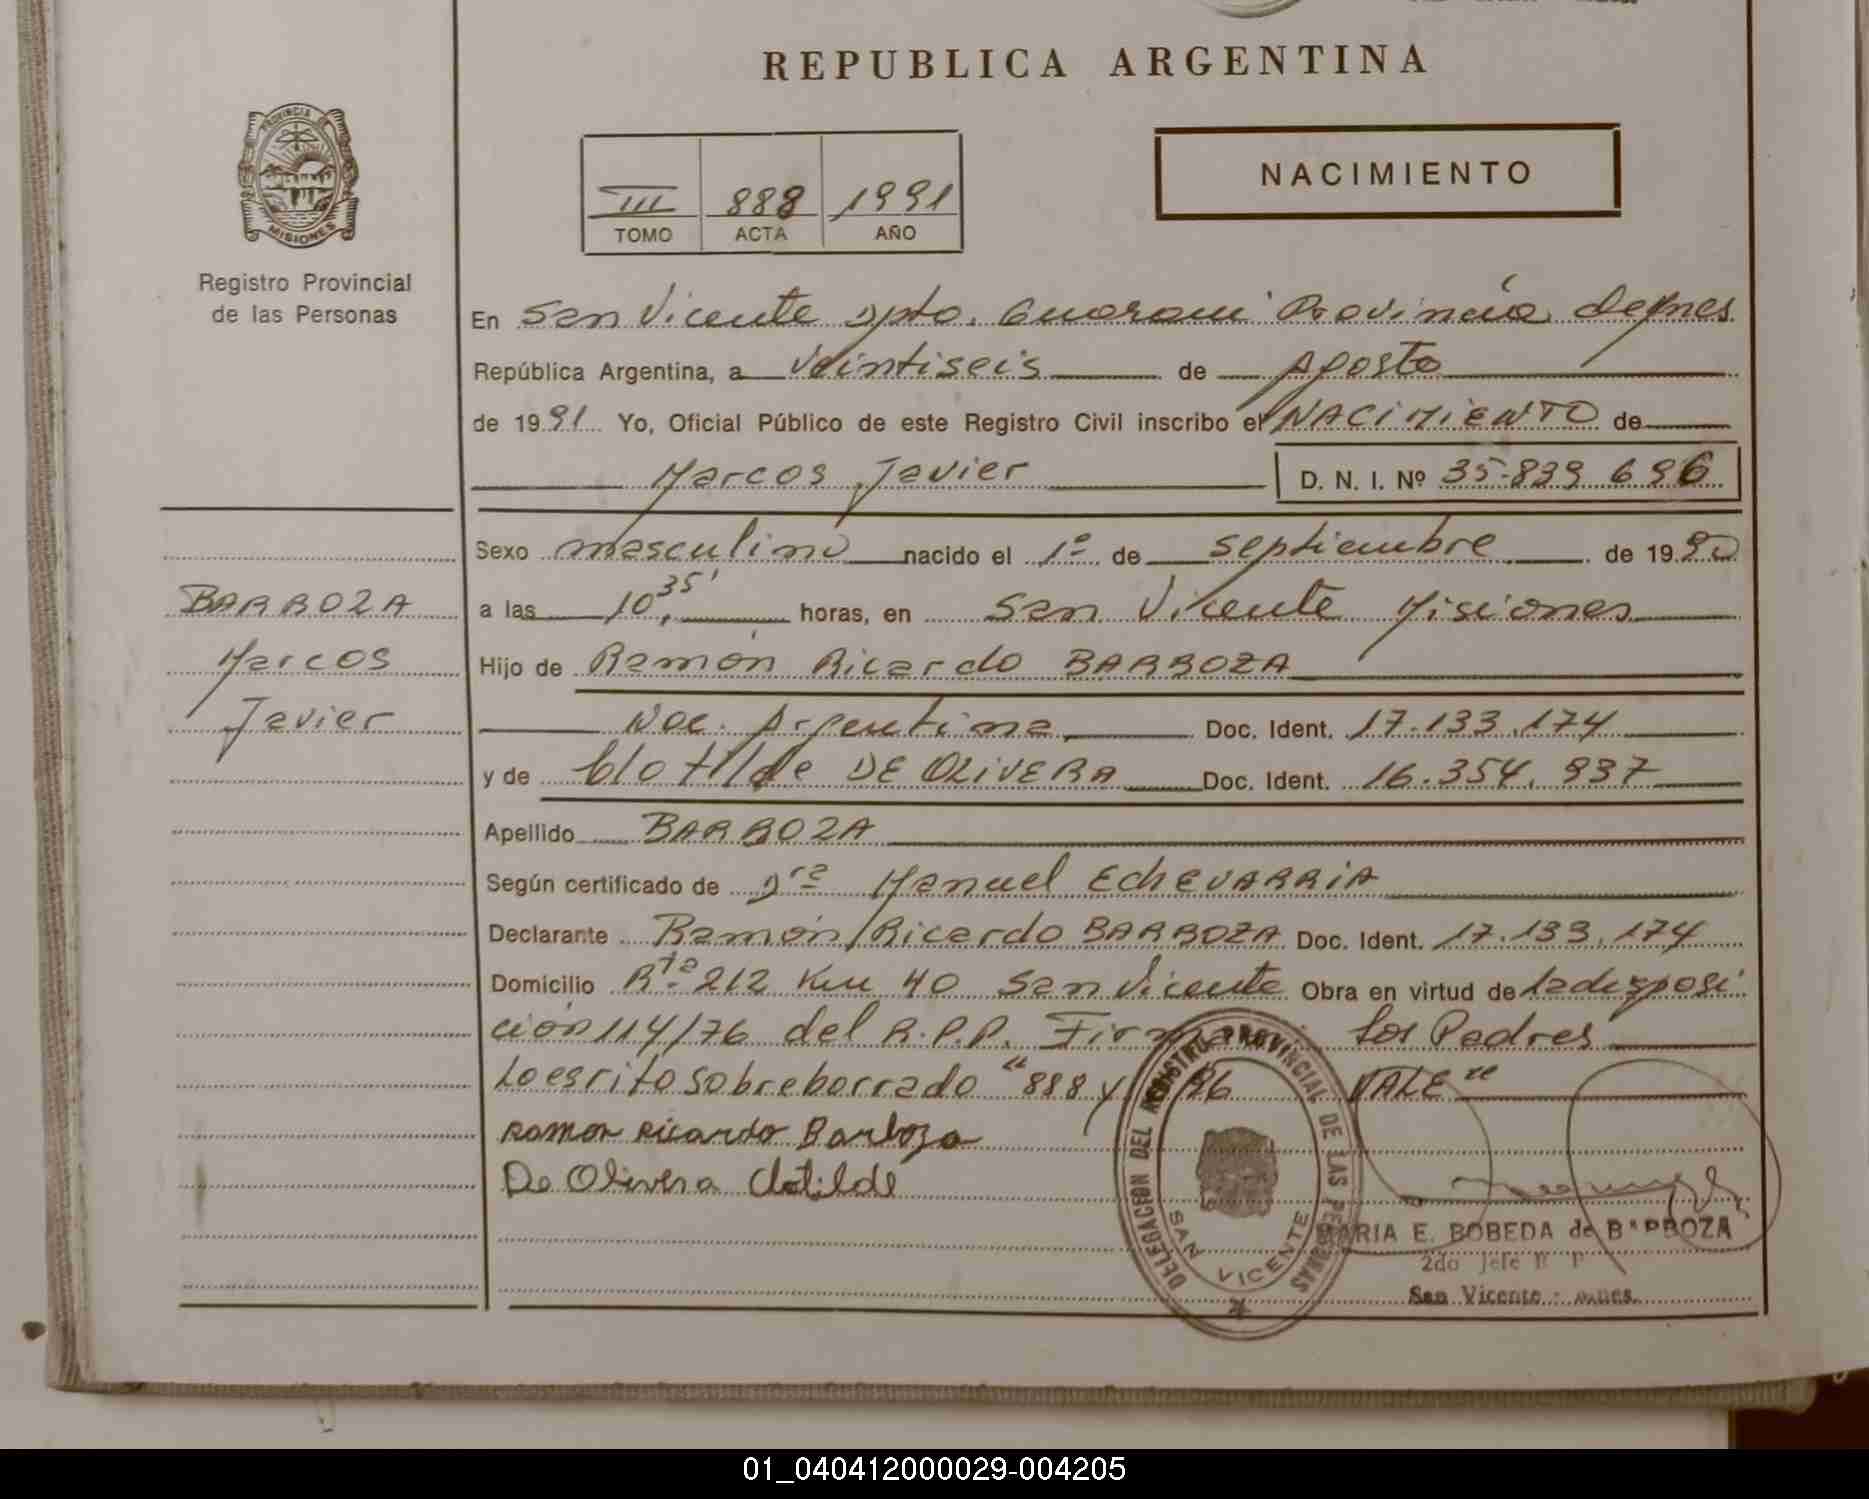 REPUBLICA ARGENTINA
PROVINCIA DE
MISIONES
Registro Provincial
de las Personas
III 888 1991
TOMO ACTA AÑO
NACIMIENTO
En San Vicente Dpto. Guarani Provincia de Mnes
República Argentina, a Veintiseis de Agosto
de 1991 Yo, Oficial Público de este Registro Civil inscribo el NACIMIENTO de
Marcos Javier D. N. I. Nº 35.839 696
Sexo masculino nacido el 1º de septiembre de 1990
a las 10,35' horas, en San Vicente Misiones
Hijo de Ramón Ricardo BARBOZA
Nac. Argentina Doc. Ident. 17.133.174
y de Clotilde DE OLIVERA Doc. Ident. 16.354.937
Apellido BARBOZA
Según certificado de Dra Manuel EchEVARRIA
Declarante Ramón Ricardo BARBOZA Doc. Ident. 17.133.174
Domicilio Rta. 212 Km 40 San Vicente Obra en virtud de la disposi
ción 114/76 del R.P.P. Firman Los Padres
Lo escrito sobreborrado "888 y 96 VALE
Ramon Ricardo Barboza
De Olivera Clotilde
BARBOZA
Marcos
Javier
DELEGACION DEL REGISTRO PROVINCIAL DE LAS PERSONAS
SAN VICENTE
MARIA E. BOBEDA de BARBOZA
2do Jefe R P
San Vicente - Mnes.
01_040412000029-004205